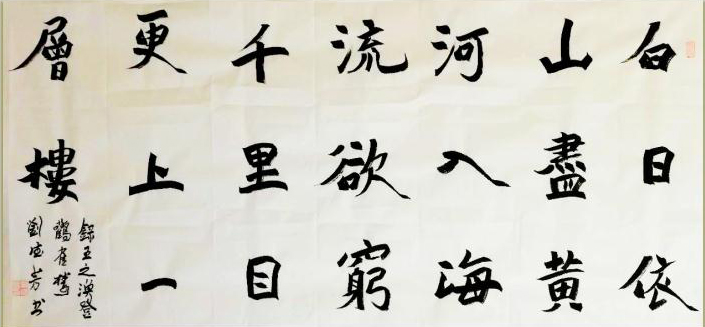 白日依
山盡黃
河入海
流欲窮
千里目
更上一
層樓
錄王之渙登
鸛雀樓
劉芳书